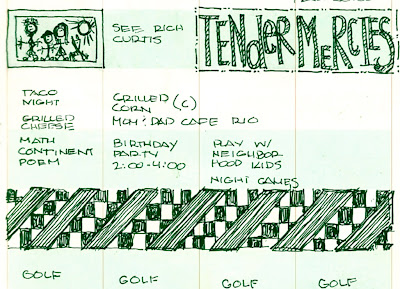 SEE RICH
CURTIS
TENDER MERCIES
TACO
NIGHT
GRILLED
CHEESE
MATH
CONTINENT
POEM
GRILLED
CORN (C)
MOM & DAD CAFE RIO
BIRTHDAY
PARTY
2:00-4:00
PLAY W/
NEIGHBOR
HOOD KIDS
NIGHT GAMES
GOLF
GOLF
GOLF
GOLF